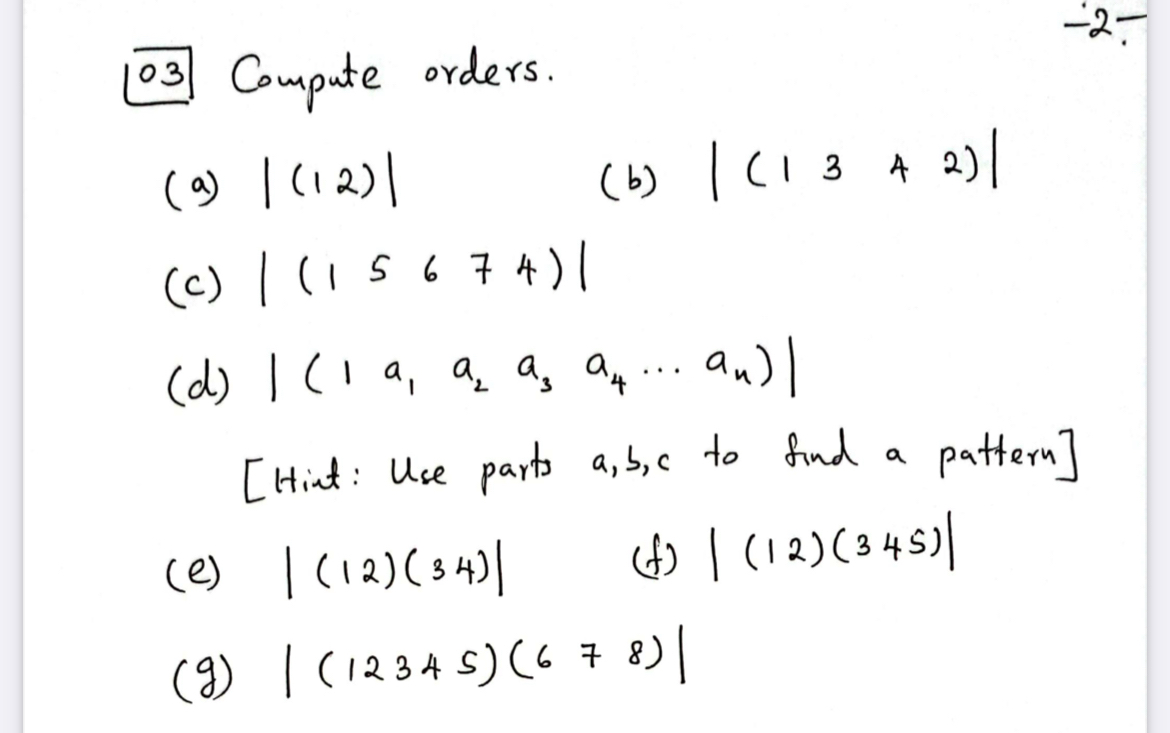 -2-
03 Compute orders.
(a) |(1 2)| (b) |(1 3 4 2)|
(c) |(1 5 6 7 4)|
(d) |(1 a₁ a₂ a₃ a₄ ... aₙ)|
[Hint: Use parts a,b,c to find a pattern]
(e) |(1 2)(3 4)| (f) |(1 2)(3 4 5)|
(g) |(1 2 3 4 5)(6 7 8)|